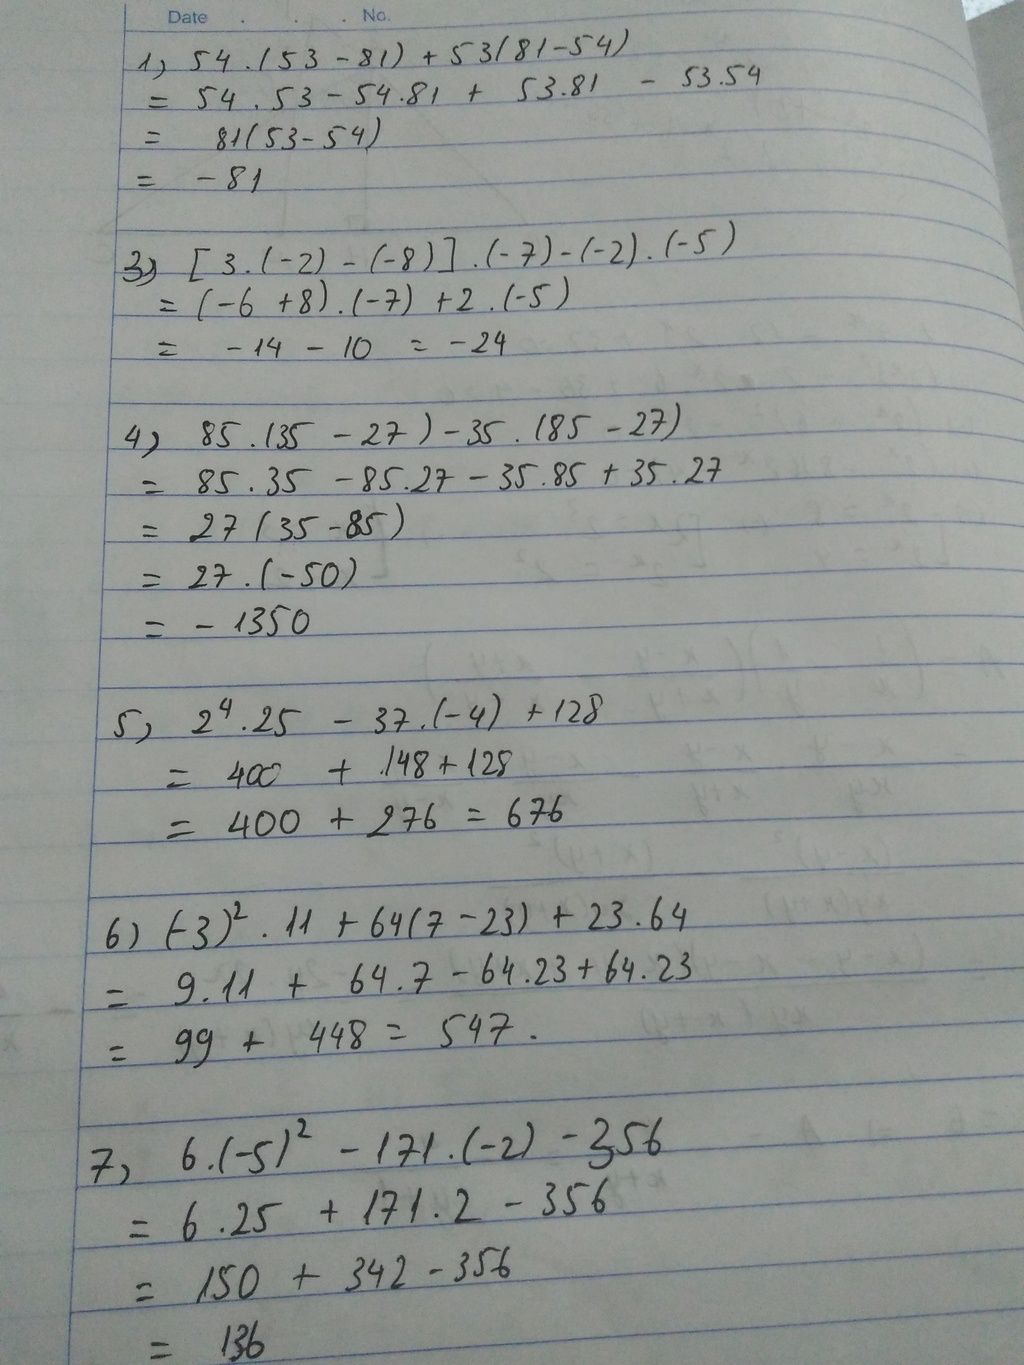 Date . . . No.
1) 54.(53 - 81) + 53(81-54)
= 54.53 - 54.81 + 53.81 - 53.54
= 81(53-54)
= -81
3) [3.(-2) - (-8)].(-7) - (-2).(-5)
= (-6 + 8).(-7) + 2.(-5)
= -14 - 10 = -24
4) 85.(35 - 27) - 35.(85 - 27)
= 85.35 - 85.27 - 35.85 + 35.27
= 27(35-85)
= 27.(-50)
= - 1350
5) 2⁴.25 - 37.(-4) + 128
= 400 + 148 + 128
= 400 + 276 = 676
6) (-3)².11 + 64(7-23) + 23.64
= 9.11 + 64.7 - 64.23 + 64.23
= 99 + 448 = 547.
7) 6.(-5)² - 171.(-2) - 356
= 6.25 + 171.2 - 356
= 150 + 342 - 356
= 136